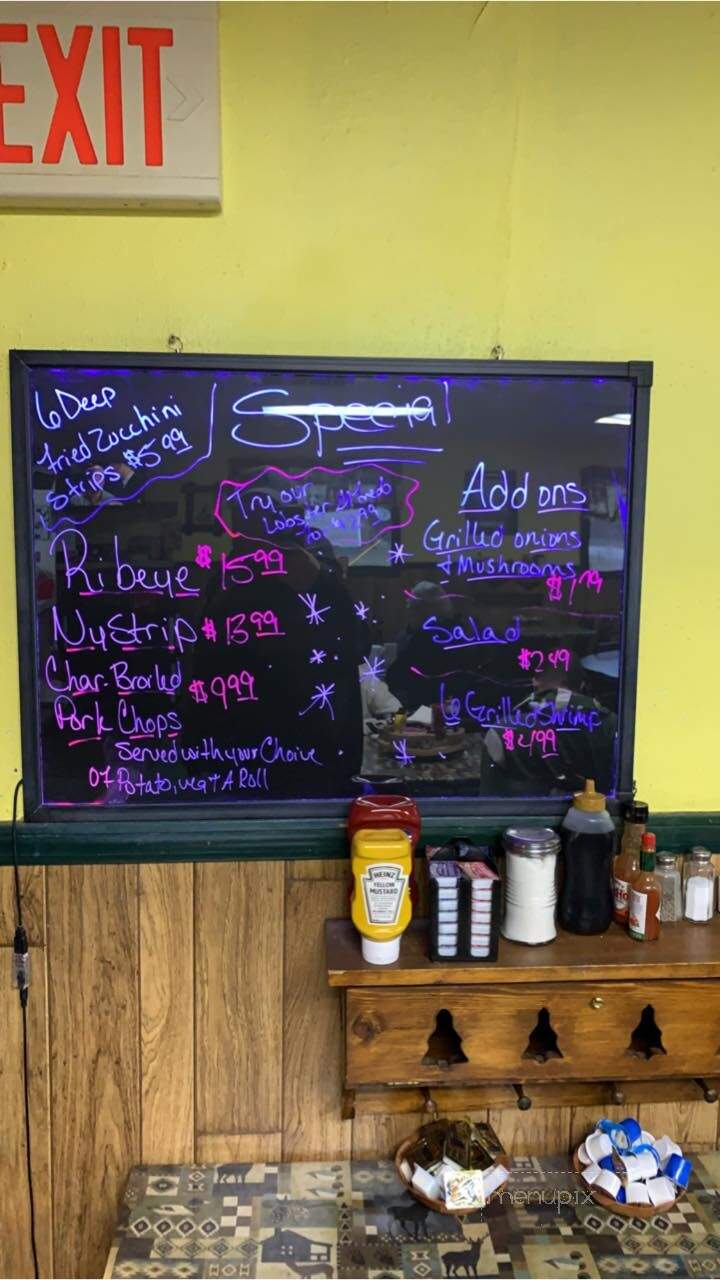 EXIT
6 Deep
Fried Zucchini
Strips $5.99
Special
Try our
Lobster
Add ons
Grilled onions
& Mushrooms
Ribeye $15.99
NY Strip $13.99
Salad
$2.49
Char. Broiled
Pork Chops $9.99
6 Grilled Shrimp
$4.99
Served with your Choice
Of Potato, veg & A Roll
HEINZ
YELLOW
MUSTARD
menupix